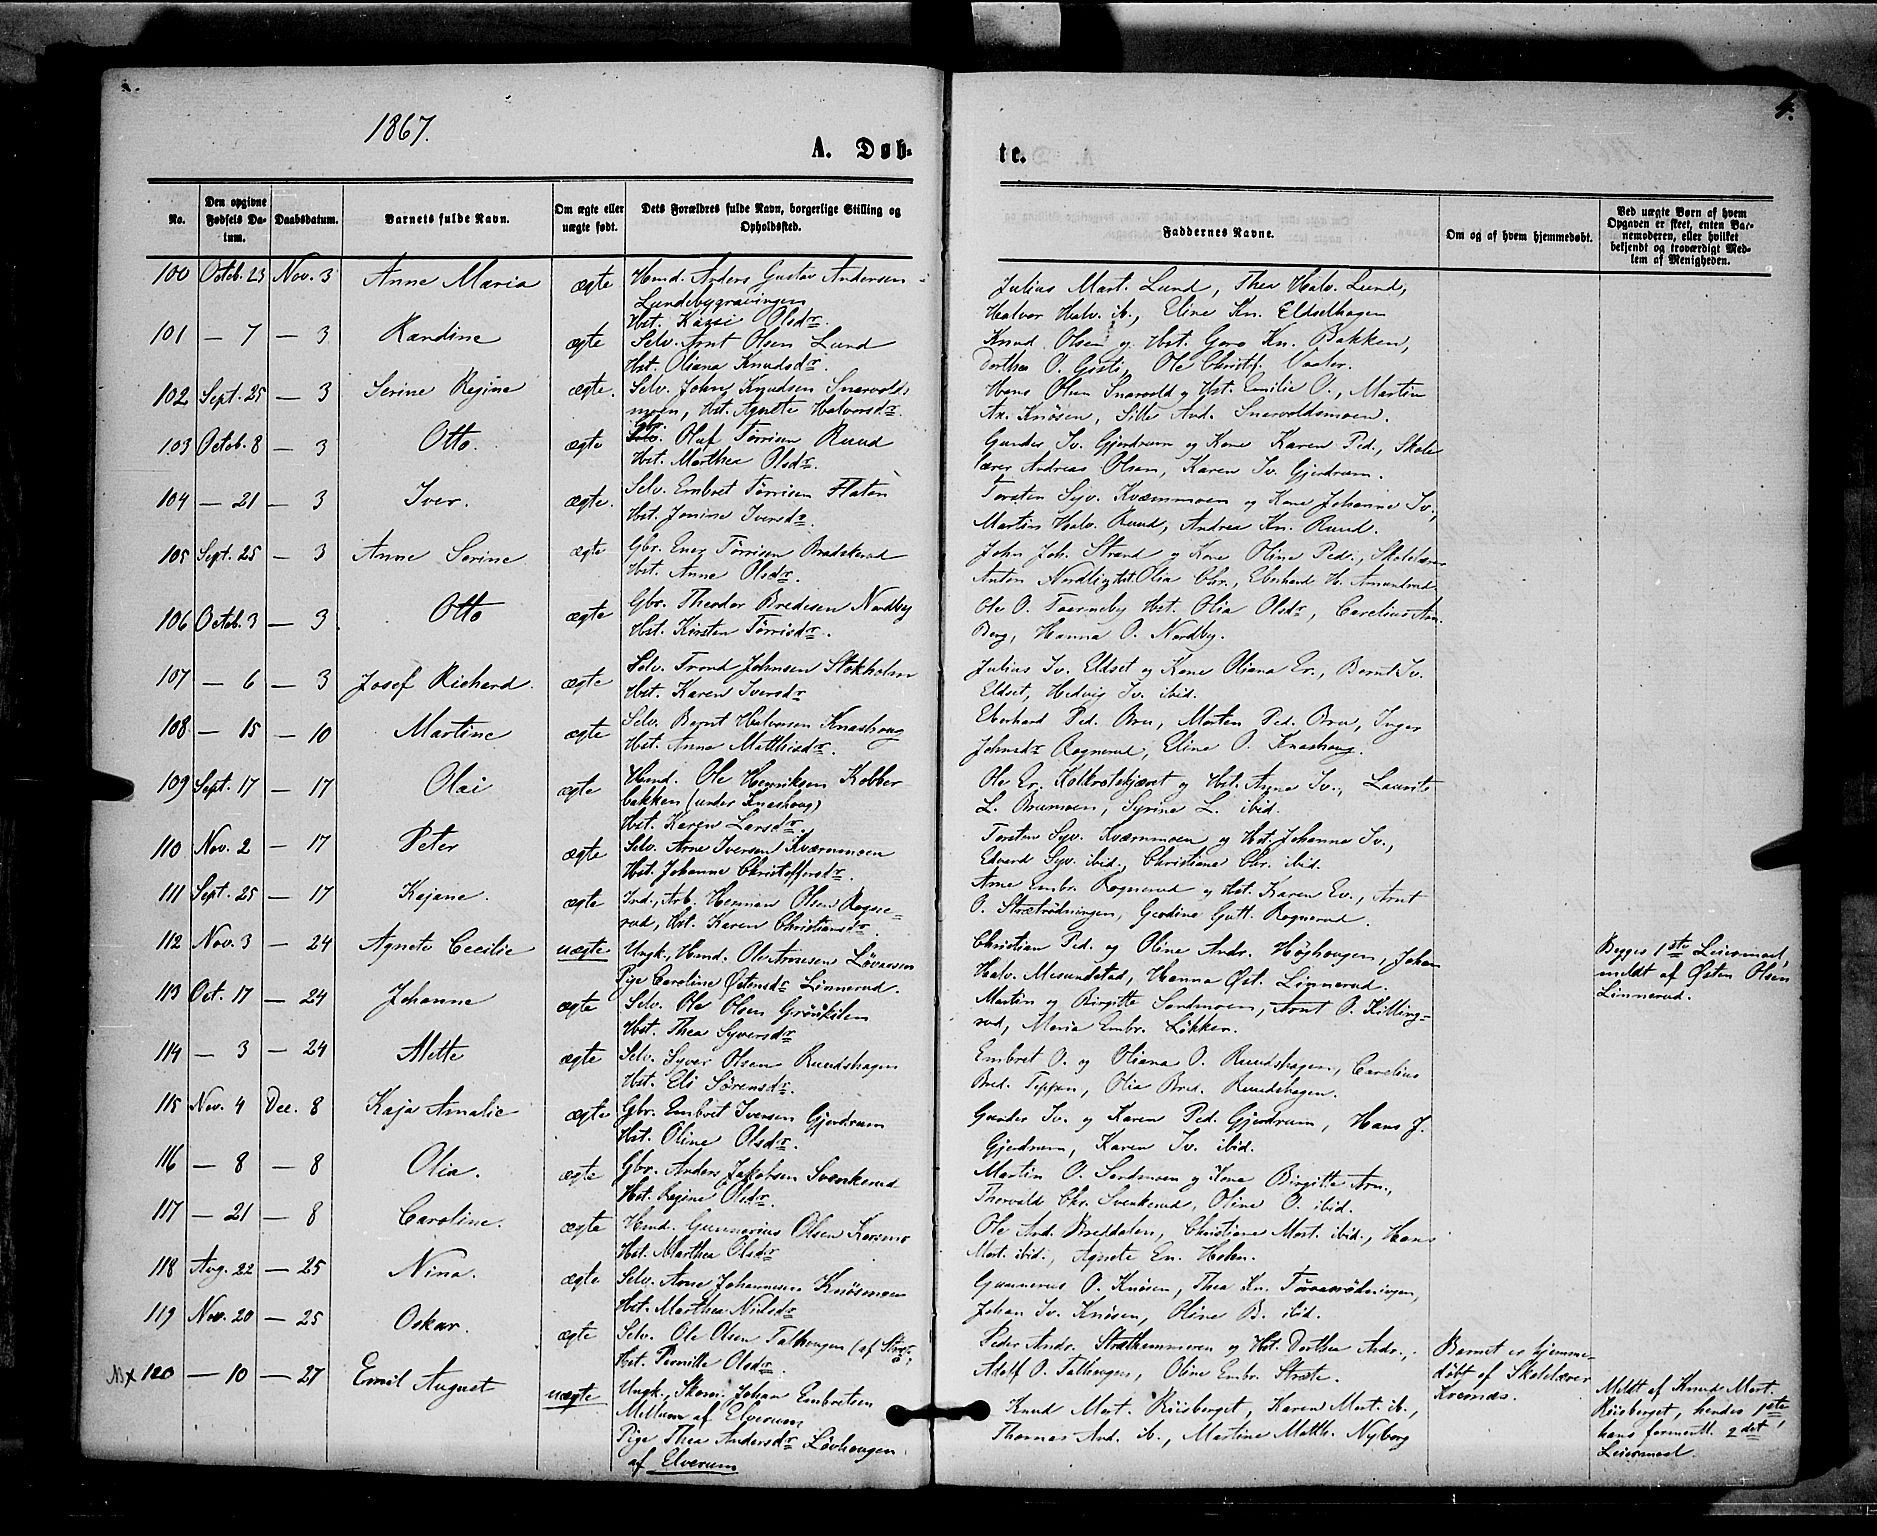 1867.
4.
A. Døb-
te.
No.
Den opgivne Fødsels Datum.
Daabsdatum.
Barnets fulde Navn.
Om ægte eller uægte født.
Dets Forældres fulde Navn, borgerlige Stilling og Opholdssted.
Faddernes Navne.
Om og af hvem hjemmedøbt.
Ved uægte Børn af hvem Opgaven er skeet, enten Barnemoderen, eller hvilket bekjendt og troværdigt Medlem af Menigheden.
100 Octob. 23 Nov. 3 Anne Maria ægte Hmd. Anders Gustav Andersen
Lundebygravingen
Hst. Kassi Olsdr.
Julius Mart. Lund, Thea Halv. Lund,
Halvor Halv. ib., Eline Kn. Eldsethagen
101 — 7 — 3 Randine ægte Selv. Arnt Olsen Lund
Hst. Oliana Knudsdr
Knud Olsen og Hst. Goro Kn. Bakken,
Dorthea O. Gisti, Ole Christf. Vaaler.
102 Sept. 25 — 3 Serine Regine ægte. Selv. John Knudsen Snarvolds
moen, Hst. Agnete Halvorsdr.
Hans Olsen Snarvold og Hst. Emilie O., Martin
Ax. Knösen, Sille And. Snarvoldsmoen.
103 Octob. 8 — 3 Otto. ægte Gbr. Oluf Törrisen Ruud
Hst. Marthea Olsdr.
Gunder Iv. Gjerdrum og Kone Karen Ped., Skole
lærer Andreas Olsen, Karen Iv. Gjerdrum.
104 — 21 — 3 Iver. ægte. Selv. Embret Törrisen Flaten
Hst. Jonine Iversdr.
Torsten Syv. Kværnmoen og Kone Johanne Iv.,
Martin Halv. Ruud, Andrea Kn. Ruud.
105 Sept. 25 — 3 Anne Serine ægte Gbr. Enez Törrisen Bradskerud
Hst. Anne Olsdr.
John Joh. Strand og Kone Oline Ped., Skolelærer
Anton Nordli og Hst. Olia Chr., Eberhard H. Amundrud
106 Octob. 3 — 3 Otto ægte Gbr. Theodor Bredesen Nordby
Hst. Kirsten Törrisdr.
Ole O. Taarneby Hst. Olia Olsdr, Carelius Arn.
Berg, Hanna O. Nordby.
107 — 6 — 3 Josef Richard. ægte Selv. Trond Johnsen Stokholm
Hst. Karen Iversdr
Julius Iv. Eldset og Kone Oliana Er., Bernt Iv.
Eldset, Hedvig Iv. ibid.
108 — 15 — 10 Martine ægte Selv. Bernt Halvorsen Knashoug
Hst. Anne Matthisdr.
Eberhard Ped. Bru, Morten Ped. Bru, Inger
Johnsdr Rognerud, Eline O. Knashoug.
109 Sept. 17 — 17 Olai ægte Hmd. Ole Henriksen Kobber
bakken (under Knashoug)
Hst. Karen Larsdr.
Ole Er. Kolkratskjæret og Hst. Anna Iv., Laurits
L. Brumoen, Syrine L. ibid.
110 Nov. 2 — 17 Peter ægte Selv. Arne Iversen Kværnmoen
Hst. Johanne Christoffersdr.
Torsten Syv. Kværnmoen og Hst. Johanne Iv.,
Edvard Syv. ibid., Christiane Chr. ibid.
111 Sept. 25 — 17 Kajane. ægte Ind., Arb. Herman Olsen Rogne-
rud, Hst. Karen Christiansdr.
Arne Embr. Rognerud og Hst. Karen Ev., Arnt
O. Strætrödningen, Gerdine Gutt. Rognerud.
112 Nov. 3 — 24 Agnete Cecilie uægte Ungk., Hmd. Ole Arnesen Lövaasen
Pige Caroline Östensdr Linnerud.
Christian Ped. og Oline Andr. Höjhougen, Johan
Halv. Mesundstad, Hanna Öst. Linnerud.
Begges 1ste Leiermaal,
meldt af Østen Olsen
Linnerud.
113 Oct. 17 — 24 Johanne ægte Selv. Ole Olsen Grönkilen
Hst. Thea Syversdr
Martin og Birgitte Sandmoen, Arnt O. Killing-
rud, Maria Embr. Løkken.
114 — 3 — 24 Mette ægte Selv. Syver Olsen Ruudshagen
Hst. Eli Sörensdr.
Embret O. og Oliana O. Ruudshagen, Carelius
Bred. Teppen, Olia Bred. Ruudshagen.
115 Nov. 4 Dec. 8 Kaja Amalie ægte Gbr. Embret Iversen Gjerdrum
Hst. Oline Olsdr.
Gunder Iv. og Karen Ped. Gjerdrum, Hans J.
Gjerdrum, Karen Iv. ibid.
116 — 8 — 8 Olia. ægte Gbr. Anders Jakobsen Svenkerud
Hst. Regine Olsdr.
Martin O. Sandmoen og Kone Birgitte Arn.,
Thorvald Chr. Svenkerud, Oline O. ibid.
117 — 21 — 8 Caroline. ægte Hmd. Gunnerius Olsen Korsmo
Hst. Marthea Olsdr
Ole And. Breddalen, Christiane Mort. ibid., Hans
Mort. ibid., Agnete En. Holen.
118 Aug. 22 — 25 Nina. ægte Selv. Arne Johannesen Knösmoen
Hst. Marthea Nielsdr
Gunnerus O. Knösen, Thea Kn.
Johan Iv. Knösen, Oline B. ibid.
119 Nov. 20 — 25 Oskar. ægte Selv. Ole Olsen Talhougen (af
Hst. Pernille Olsdr.
Peder Andr. Stræthammeren og Hst. Dorthea Andr.,
Adolf O. Talhougen, Oline Embr. Stræte.
Barnet er hjemme-
døbt af Skolelærer
Kvernæs.
NB x 120 — 10 — 27 Emil August uægte Ungk., Skom. Johan Embretsen
Mellum af Elverum
Pige Thea Andersdr Lövhougen
af Elverum
Knud Mort. Riisberget, Karen Mort. ib.,
Thomas And. ib., Martine Matth. Nyborg
Meldt af Knud Mort.
Riisberget, hendes 1ste
hans forment. 2det
Leiermaal.